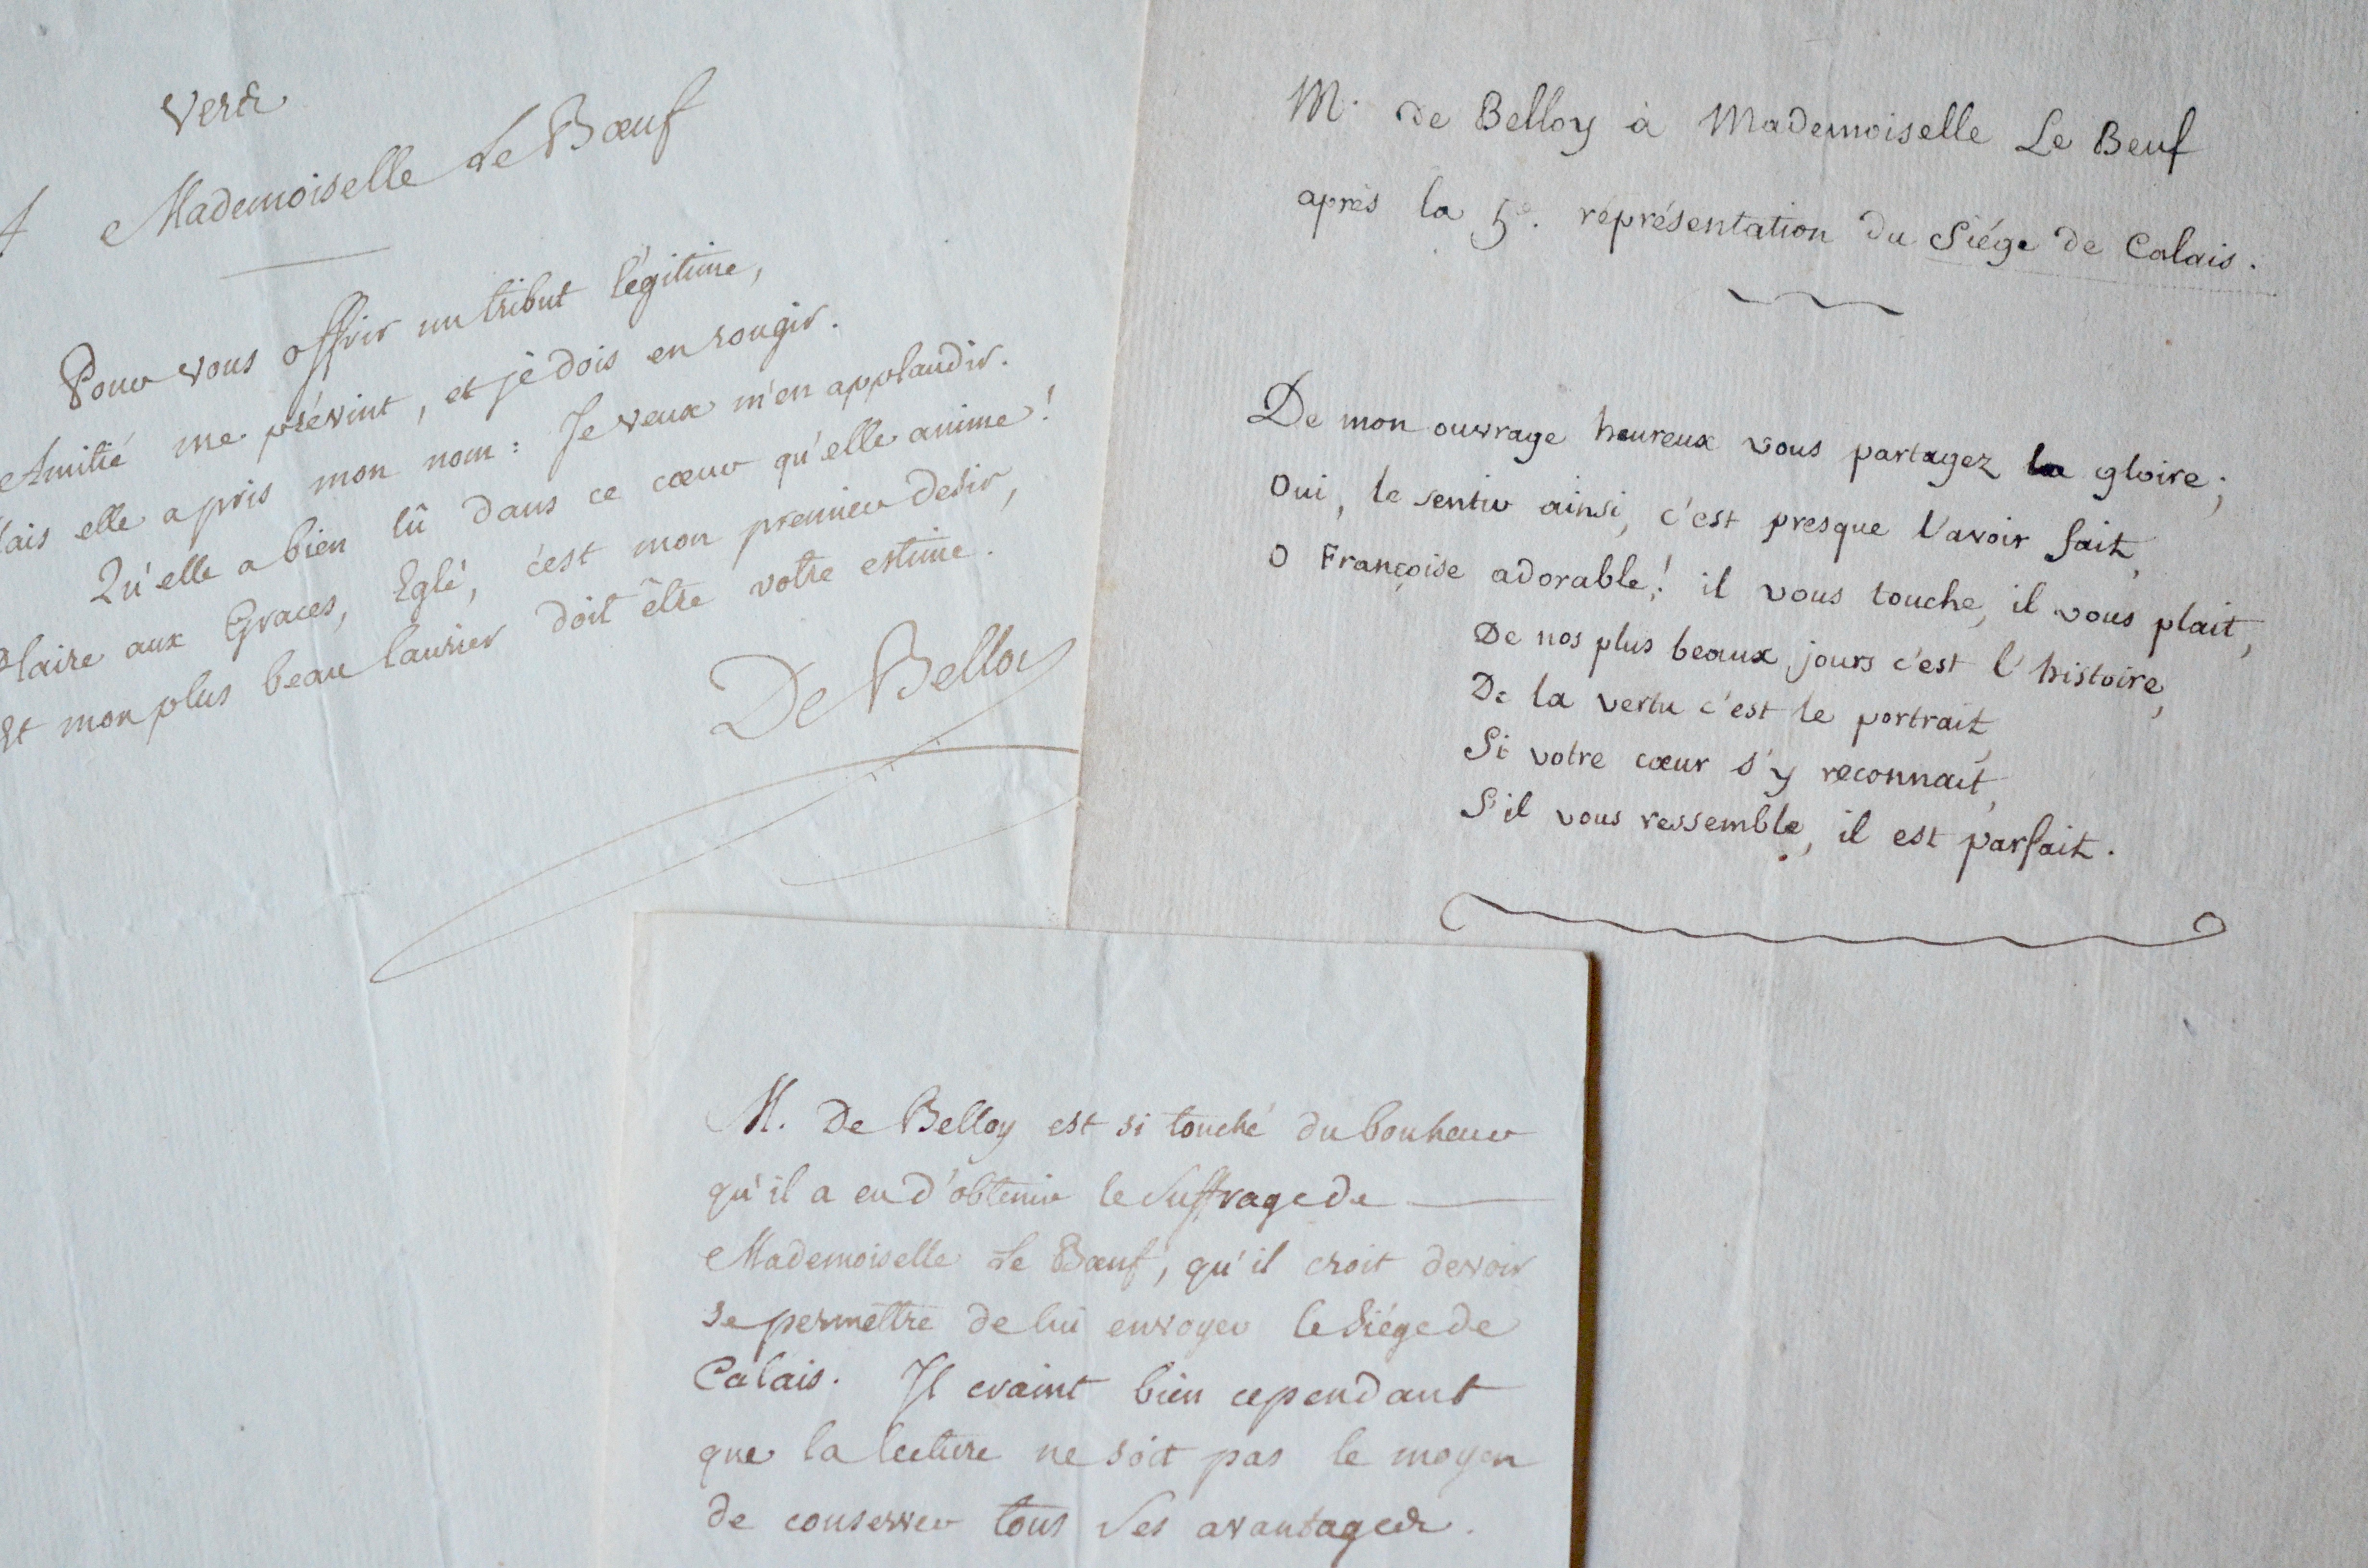 Vers
A Mademoiselle Le Bœuf
Pour vous offrir un tribut légitime,
Amitié me prévint, et je dois en rougir.
ais elle a pris mon nom : Je veux m'en applaudir.
Qu'elle a bien lû dans ce cœur qu'elle anime !
Plaire aux Graces, Eglé, c'est mon premier desir,
Et mon plus beau laurier doit être votre estime.
De Belloy
M. de Belloy à Mademoiselle Le Beuf
après la 5e. réprésentation du Siége de Calais.
De mon ouvrage heureux vous partagez la gloire ;
Oui, le sentir ainsi, c'est presque l'avoir fait,
O Françoise adorable ! il vous touche, il vous plait,
De nos plus beaux jours c'est l'histoire,
De la vertu c'est le portrait,
Si votre cœur s'y reconnait,
S'il vous ressemble, il est parfait.
M. De Belloy est si touché du bonheur
qu'il a eu d'obtenir le suffrage de
Mademoiselle Le Bœuf, qu'il croit devoir
se permettre de lui envoyer le Siége de
Calais. Il craint bien cependant
que la lecture ne soit pas le moyen
de conserver tous ses avantages.